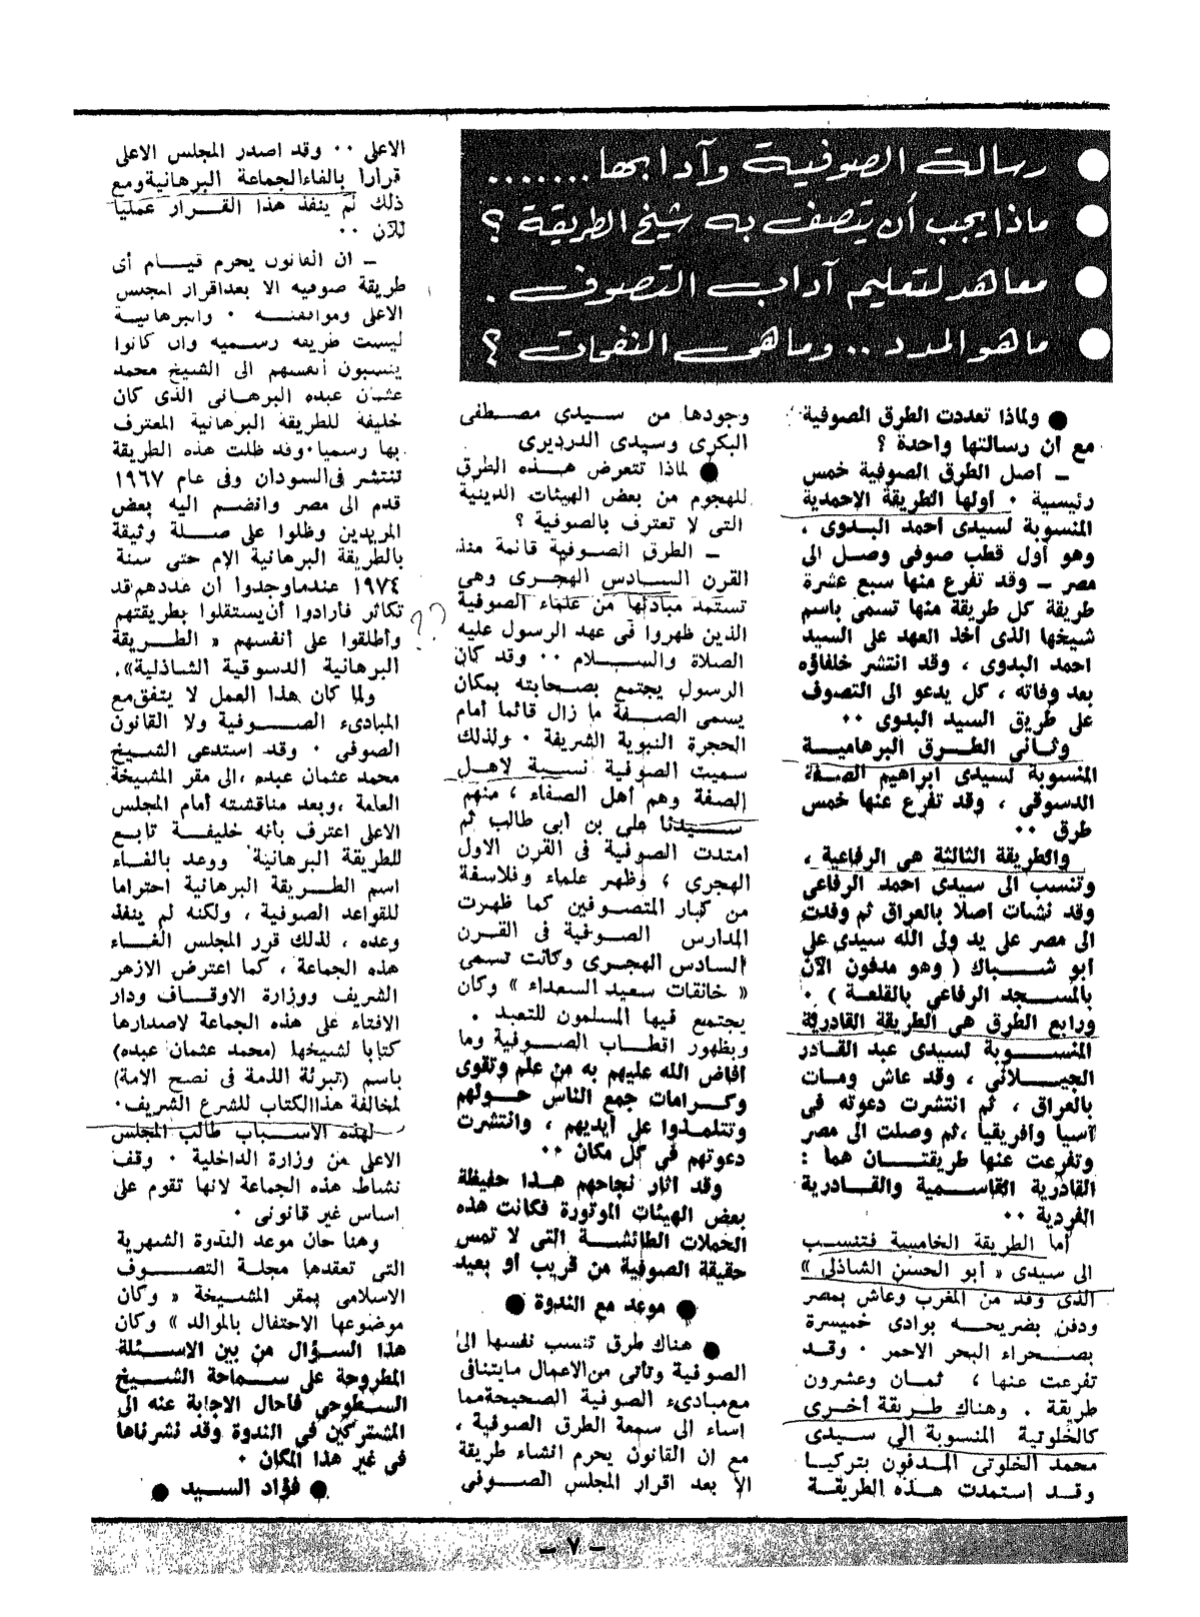 ● رسالة الصوفية وآدابها .......
● ماذا يجب أن يتصف به شيخ الطريقة ؟
● معاهد لتعليم آداب التصوف .
● ماهو المدد .. وماهى النفحات ؟
● ولماذا تعددت الطرق الصوفية
مع ان رسالتها واحدة ؟
ـ اصل الطرق الصوفية خمس
رئيسية ٠ اولها الطريقة الاحمدية
المنسوبة لسيدى احمد البدوى ،
وهو أول قطب صوفى وصل الى
مصر ـ وقد تفرع منها سبع عشرة
طريقة كل طريقة منها تسمى باسم
شيخها الذى أخذ العهد على السيد
احمد البدوى ، وقد انتشر خلفاؤه
بعد وفاته ، كل يدعو الى التصوف
على طريق السيد البدوى ٠٠
وثانى الطرق البرهامية
المنسوبة لسيدى ابراهيم
الدسوقى ، وقد تفرع عنها خمس
طرق ٠٠
والطريقة الثالثة هى الرفاعية ،
وتنسب الى سيدى احمد الرفاعى
وقد نشأت اصلا بالعراق ثم وفدت
الى مصر على يد ولى الله سيدى على
أبو شباك ( وهو مدفون الآن
بالمسجد الرفاعى بالقلعة ) ٠
ورابع الطرق هى الطريقة القادرية
المنسوبة لسيدى عبد القادر
الجيلانى ، وقد عاش ومات
بالعراق ، ثم انتشرت دعوته فى
آسيا وافريقيا ،ثم وصلت الى مصر
وتفرعت عنها طريقتان هما :
القادرية القاسمية والقادرية
الفردية ٠٠
أما الطريقة الخامسة فتنسب
الى سيدى « أبو الحسن الشاذلى »
الذى وفد من المغرب وعاش بمصر
ودفن بضريحه بوادى خميسرة
بصحراء البحر الاحمر ٠ وقد
تفرعت عنها ، ثمان وعشرون
طريقة . وهناك طريقة أخرى
كالخلوتية المنسوبة الى سيدى
محمد الخلوتى المدفون بتركيا
وقد استمدت هذه الطريقة
وجودها من سيدى مصطفى
البكرى وسيدى الدرديرى
● لماذا تتعرض هذه الطرق
للهجوم من بعض الهيئات الدينية
التى لا تعترف بالصوفية ؟
ـ الطرق الصوفية قائمة منذ
القرن السادس الهجرى وهى
تستمد مبادئها من علماء الصوفية
الذين ظهروا فى عهد الرسول عليه
الصلاة والسلام ٠٠ وقد كان
الرسول يجتمع بصحابته بمكان
يسمى الصفة ما زال قائما أمام
الحجرة النبوية الشريفة ٠ ولذلك
سميت الصوفية نسبة لاهل
الصفة وهم أهل الصفاء ، منهم
سيدنا على بن أبى طالب ثم
امتدت الصوفية فى القرن الاول
الهجرى ، وظهر علماء وفلاسفة
من كبار المتصوفين كما ظهرت
المدارس الصوفية فى القرن
السادس الهجرى وكانت تسمى
« خانقات سعيد السعداء » وكان
يجتمع فيها المسلمون للتعبد .
وبظهور اقطاب الصوفية وما
أفاض الله عليهم به من علم وتقوى
وكرامات جمع الناس حولهم
وتتلمذوا على أيديهم ، وانتشرت
دعوتهم فى كل مكان ٠٠
وقد اثار نجاحهم هذا حفيظة
بعض الهيئات الموتورة فكانت هذه
الحملات الطائشة التى لا تمس
حقيقة الصوفية من قريب أو بعيد
● موعد مع الندوة ●
● هناك طرق تنسب نفسها الى
الصوفية وتأتى من الاعمال مايتنافى
مع مبادىء الصوفية الصحيحة مما
اساء الى سمعة الطرق الصوفية ،
مع ان القانون يحرم انشاء طريقة
الا بعد اقرار المجلس الصوفى
الاعلى ٠٠ وقد اصدر المجلس الاعلى
قرارا بالغاء الجماعة البرهانية ومع
ذلك لم ينفذ هذا القرار عمليا
للآن ٠٠
ـ ان القانون يحرم قيام أى
طريقة صوفيه الا بعد اقرار المجلس
الاعلى وموافقته ٠ والبرهانية
ليست طريقه رسميه وان كانوا
ينسبون أنفسهم الى الشيخ محمد
عثمان عبده البرهانى الذى كان
خليفة للطريقة البرهانية المعترف
بها رسميا ٠وقد ظلت هذه الطريقة
تنتشر فى السودان وفى عام ١٩٦٧
قدم الى مصر وانضم اليه بعض
المريدين وظلوا على صلة وثيقة
بالطريقة البرهانية الام حتى سنة
١٩٧٤ عندما وجدوا ان عددهم قد
تكاثر فأرادوا أن يستقلوا بطريقتهم
وأطلقوا على أنفسهم « الطريقة
البرهانية الدسوقية الشاذلية».
??
ولما كان هذا العمل لا يتفق مع
المبادىء الصوفية ولا القانون
الصوفى ٠ وقد استدعى الشيخ
محمد عثمان عبده ،الى مقر المشيخة
العامة ،وبعد مناقشته أمام المجلس
الاعلى اعترف بأنه خليفة تابع
للطريقة البرهانية ووعد بالغاء
اسم الطريقة البرهانية احتراما
للقواعد الصوفية ، ولكنه لم ينفذ
وعده ، لذلك قرر المجلس الغاء
هذه الجماعة ، كما اعترض الازهر
الشريف ووزارة الاوقاف ودار
الافتاء على هذه الجماعة لاصدارها
كتابا لشيخها (محمد عثمان عبده)
باسم (تبرئة الذمة فى نصح الامة)
لمخالفة هذا الكتاب للشرع الشريف٠
لهذه الاسباب طالب المجلس
الاعلى من وزارة الداخلية ٠ وقف
نشاط هذه الجماعة لانها تقوم على
اساس غير قانونى ٠
وهنا حان موعد الندوة الشهرية
التى تعقدها مجلة التصوف
الاسلامى بمقر المشيخة « وكان
موضوعها الاحتفال بالموالد » وكان
هذا السؤال من بين الاسئلة
المطروحة على سماحة الشيخ
السطوحى فأحال الاجابة عنه الى
المشتركين فى الندوة وقد نشرناها
فى غير هذا المكان ٠
● فؤاد السيد ●
ـ ٧ ـ